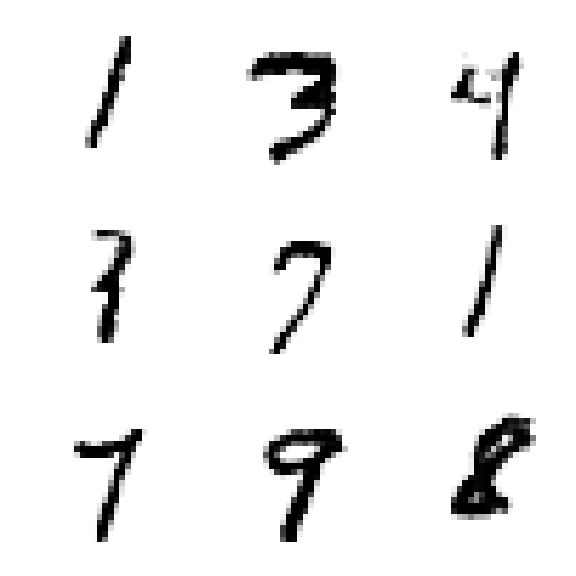 1 3 4
7 1
7 9 8